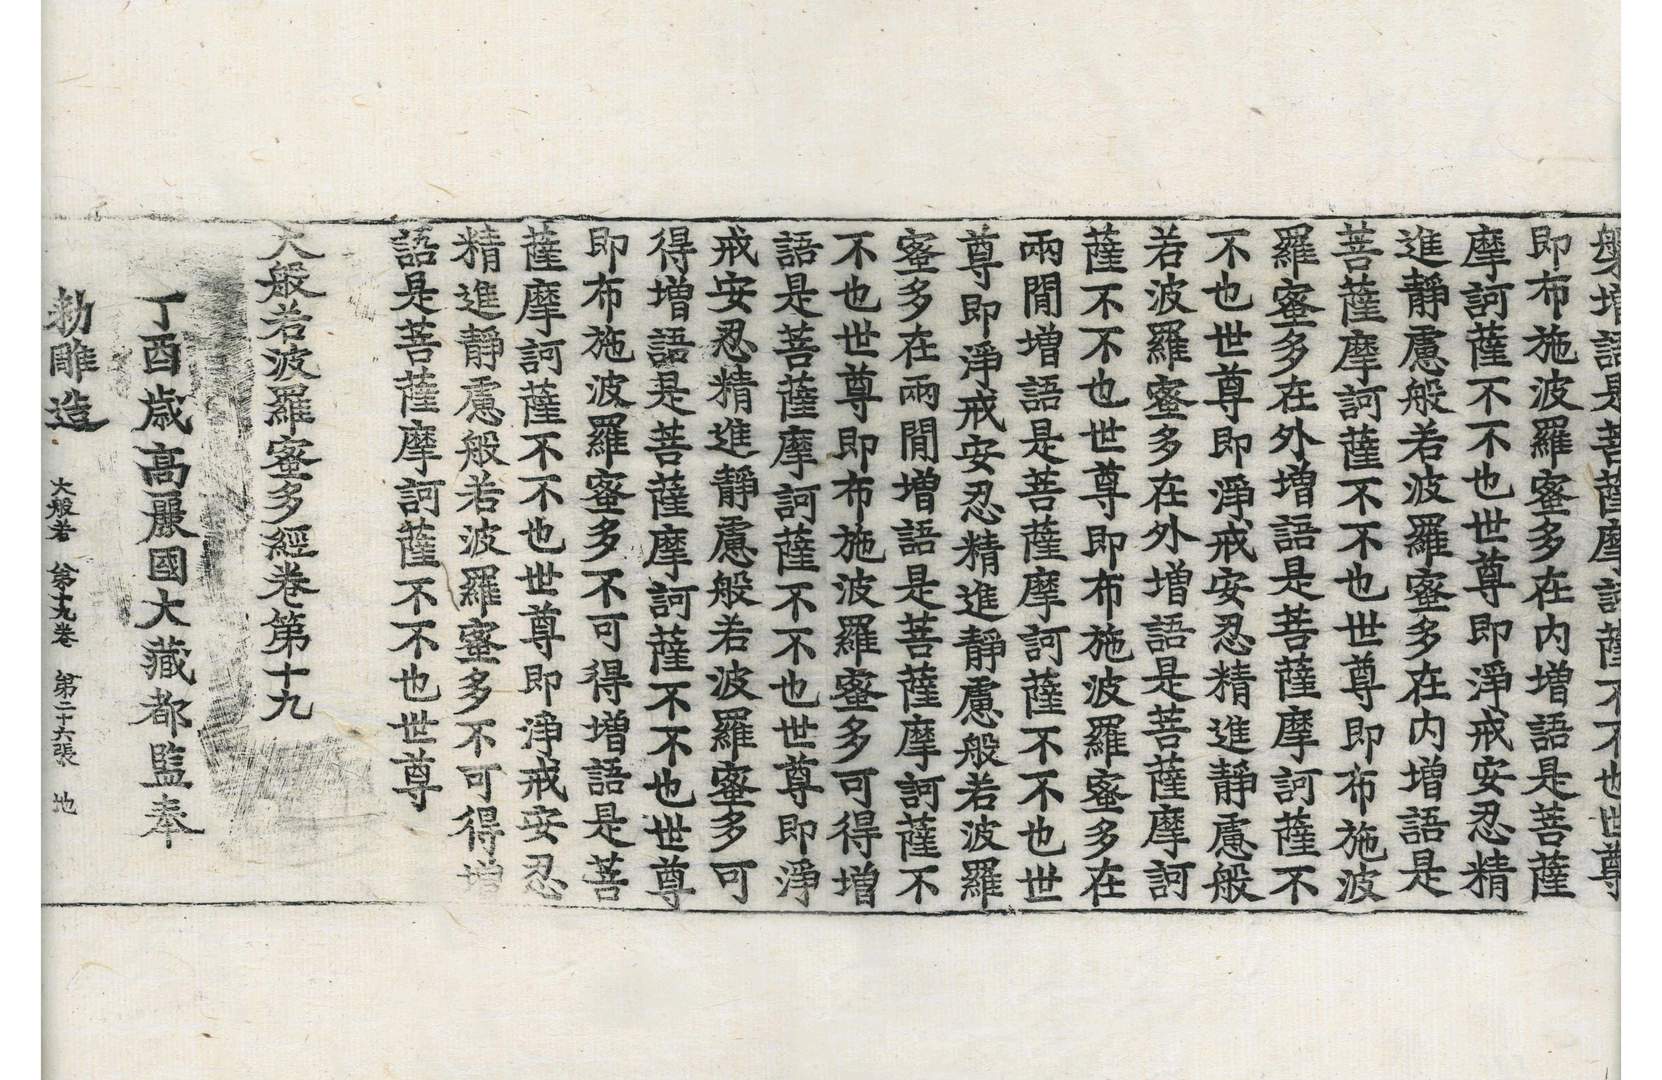 般增語是菩薩摩訶薩不不也世尊
即布施波羅蜜多在內增語是菩薩
摩訶薩不不也世尊即淨戒安忍精
進靜慮般若波羅蜜多在內增語是
菩薩摩訶薩不不也世尊即布施波
羅蜜多在外增語是菩薩摩訶薩不
不也世尊即淨戒安忍精進靜慮般
若波羅蜜多在外增語是菩薩摩訶
薩不不也世尊即布施波羅蜜多在
兩閒增語是菩薩摩訶薩不不也世
尊即淨戒安忍精進靜慮般若波羅
蜜多在兩閒增語是菩薩摩訶薩不
不也世尊即布施波羅蜜多可得增
語是菩薩摩訶薩不不也世尊即淨
戒安忍精進靜慮般若波羅蜜多可
得增語是菩薩摩訶薩不不也世尊
即布施波羅蜜多不可得增語是菩
薩摩訶薩不不也世尊即淨戒安忍
精進靜慮般若波羅蜜多不可得增
語是菩薩摩訶薩不不也世尊
大般若波羅蜜多經卷第十九
丁酉歲高麗國大藏都監奉
勅雕造
大般若 第十九卷 第二十六張 地